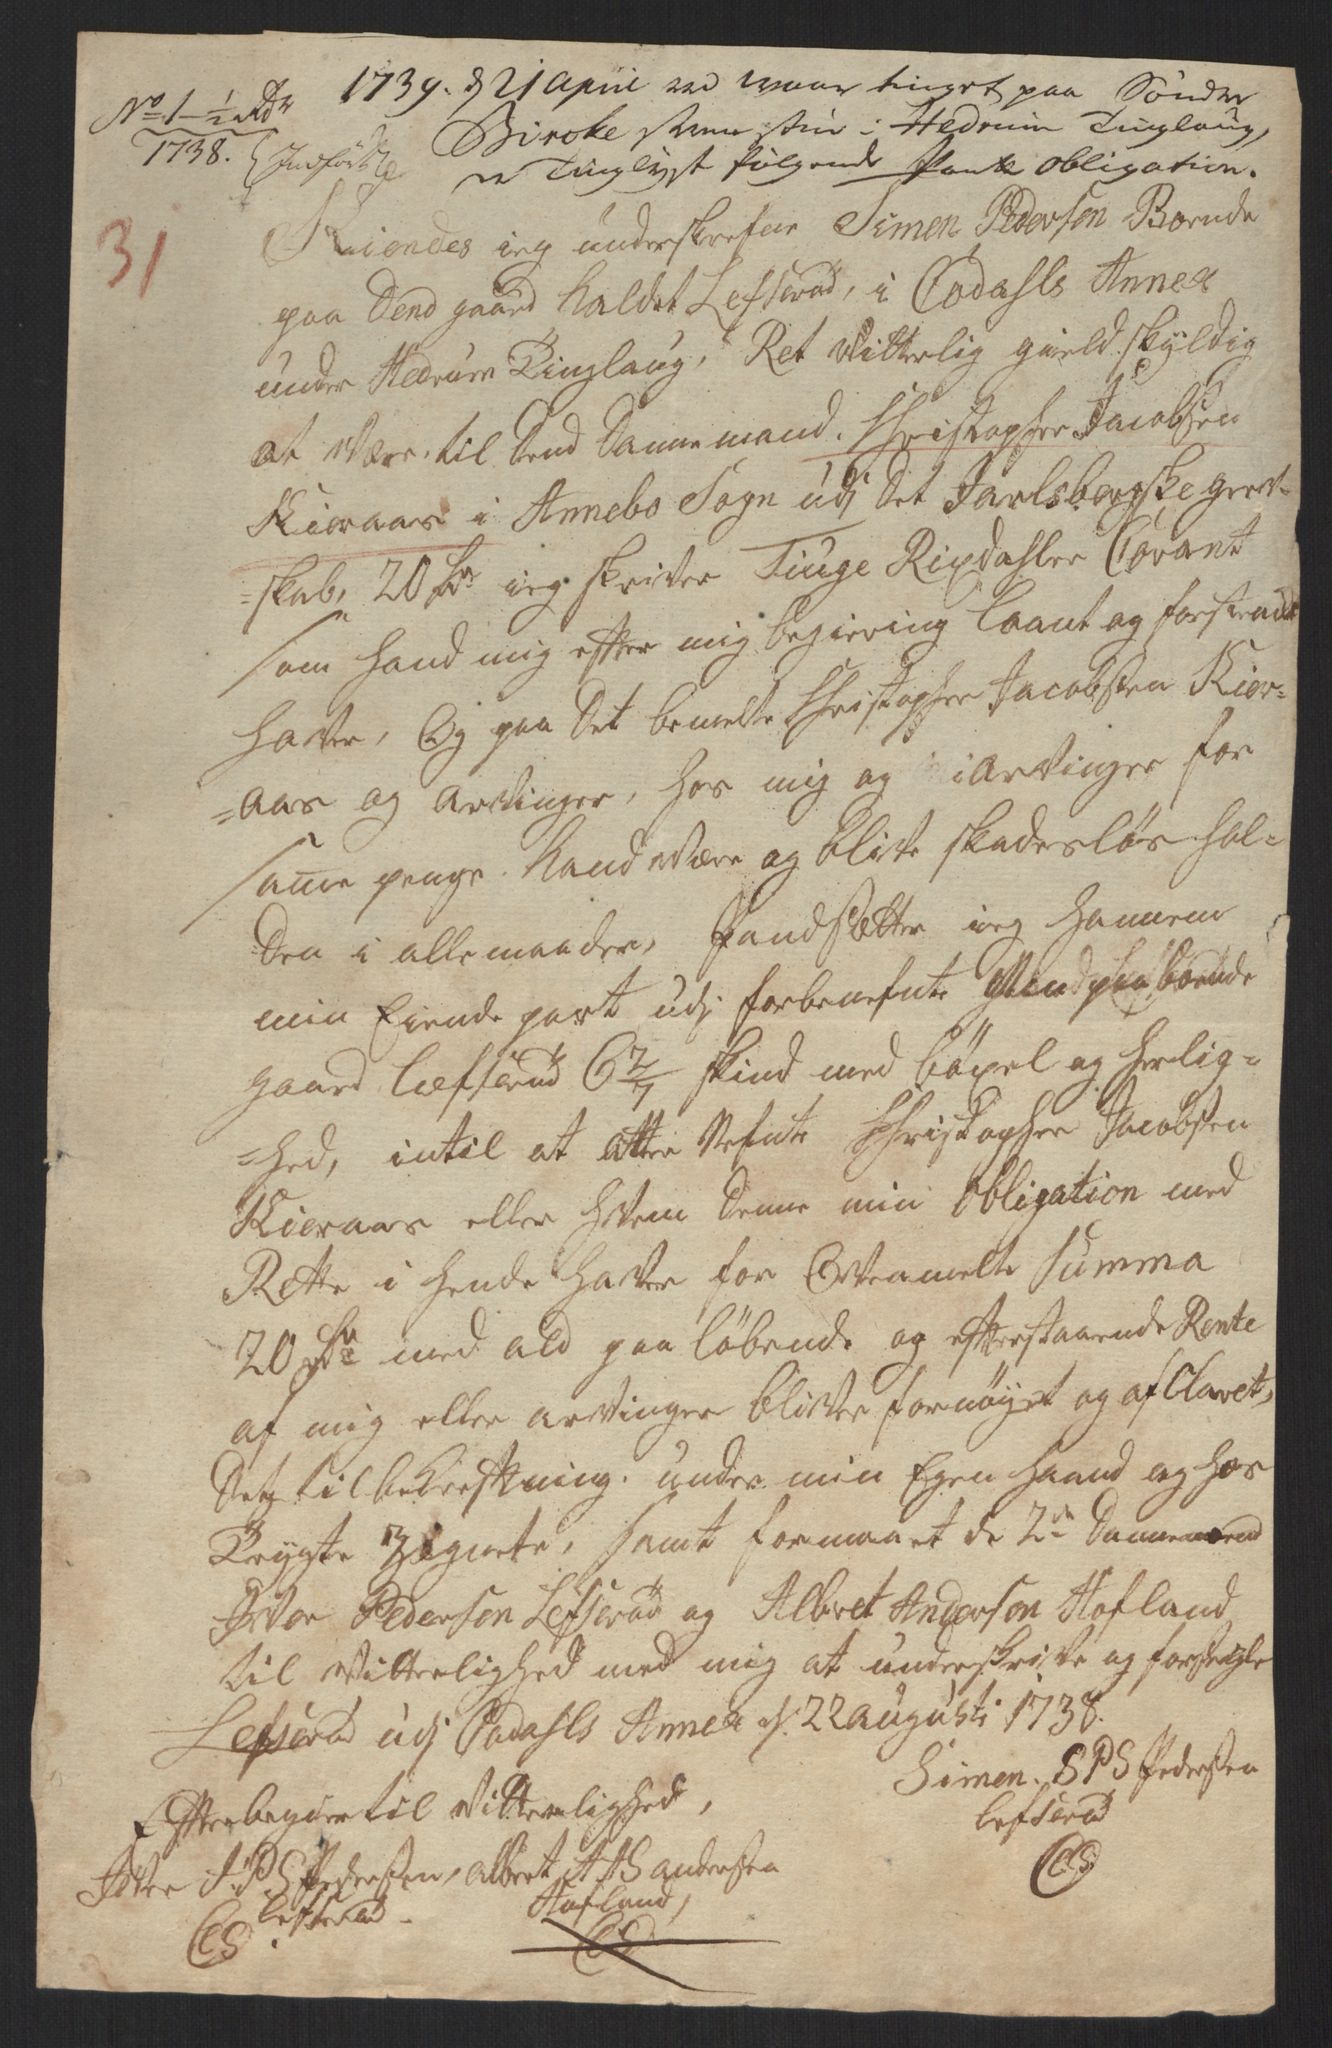 No 1 - ½ Rdr
1738.
Indført
31
1739. d 21 April ved waar tinget paa Sønder
Bircke stue i Hedrum Tinglaug,
er Tinglyst følgende Pante obligation.
Kiendes ieg underskrefne Simen Pedersen Boende
paa Dend gaard kaldet Lefserød, i Qodahls Annex
under Hedrum Tinglaug, Ret vitterlig gield skyldig
at være til Dend Dannemand. Christopher Jacobsen
Kieraas i Annebo Sogn udj Det Jarlsbergske grev-
=skab, 20 Rdr ieg skriver Tiuge Rixdahler Corant
som hand mig efter mig begiering laant og forstract
haver, Og paa Det bemelte Christopher Jacobsen Kier=
=aas og arvinger, hos mig og arvinger for
samme penge kand være og blive skadesløs hol=
den i alle maader, Pandsætter ieg hannem
min Eiende part udj forbenefnte paaboende
gaard Lefserød 6 2/7 skind med bøxel og herlig=
=hed, intil at atter Nefnte Christopher Jacobsen
Kieraas eller hvem denne min obligation med
Rette i hende haver for Ovenmelte Summa
20 Rdr med ald paa løbende og efterstaaende Rente
af mig eller arvinger bliver fornøyet og af Claret,
Dets til bekreftning under min Egen haand og hos
Trygte Zignete, samt formaaet de 2de Dannemænd
Iver Pedersen Lefserød og Albret Anderson Hafland
til vitterlighed med mig at underskrive og forseigle
Lefserød udj Qodahls Annex d. 22 augusti 1738.
Simen. S P S Pedersen
Lefserød
(LS)
Efter begier til Vitterlighed,
Iver I. P S Pedersen, albert A A S andersen
Lefserød. Hafland,
(LS) (LS)